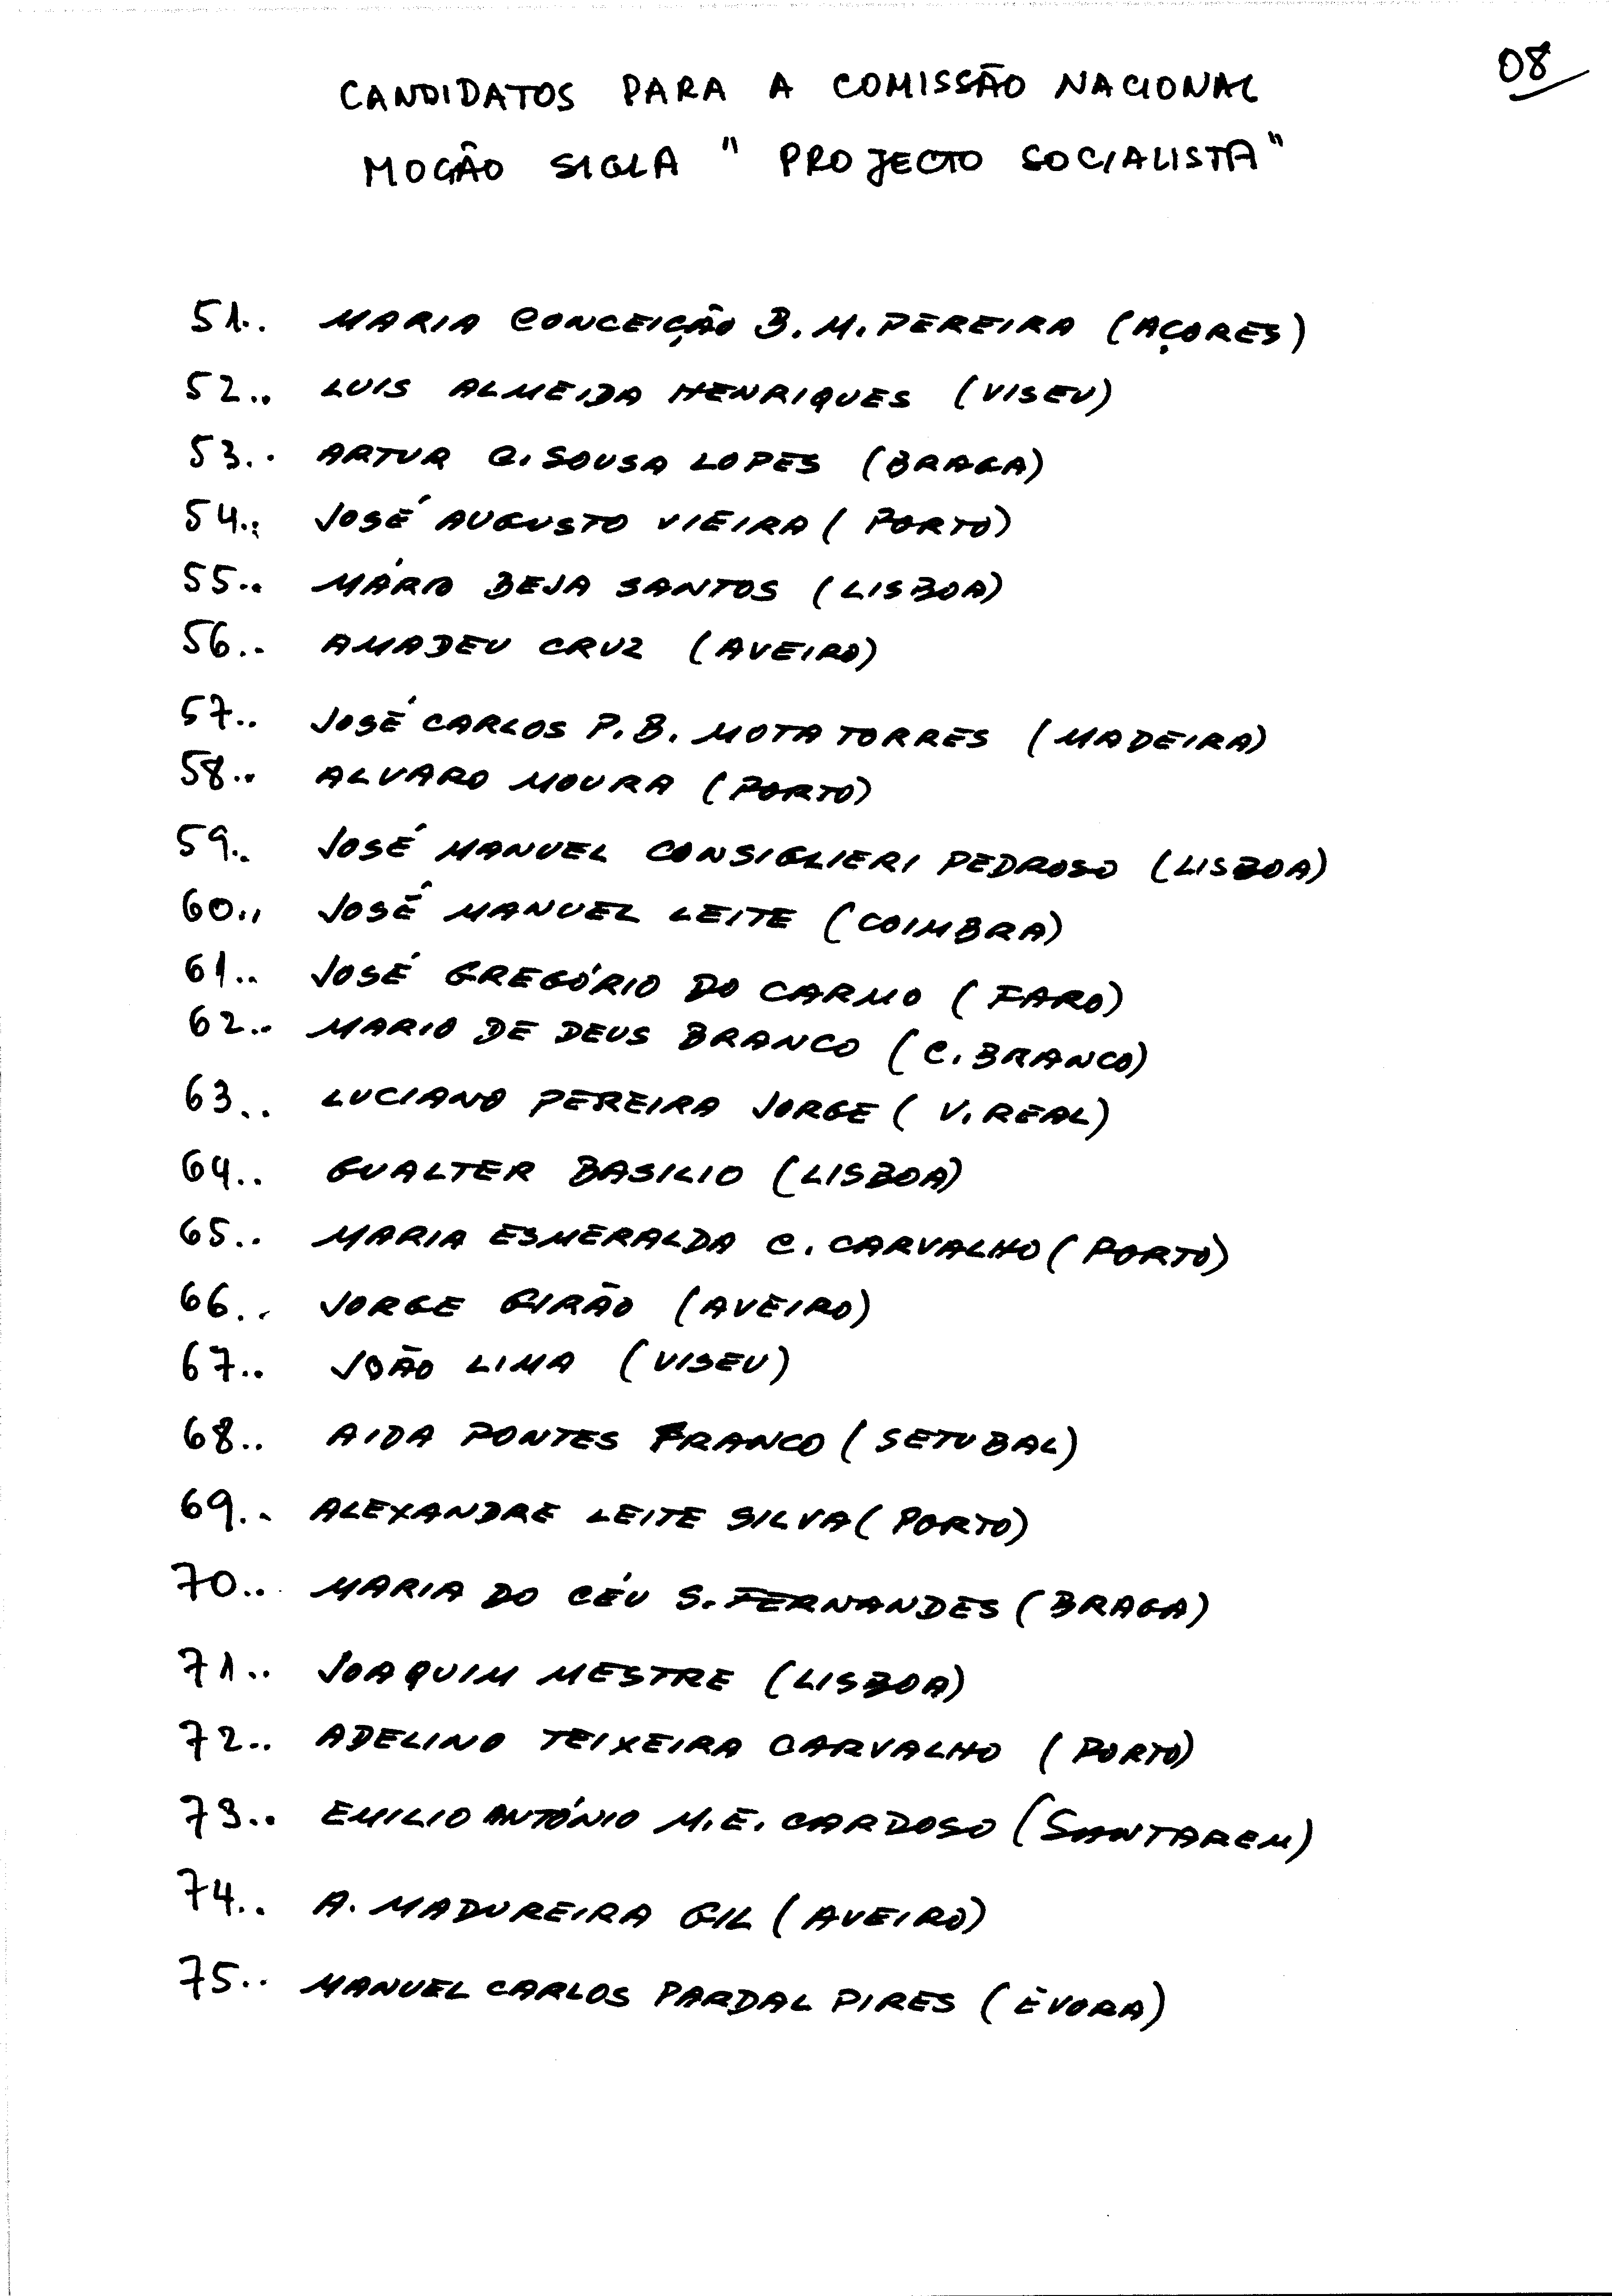 08
CANDIDATOS PARA A COMISSÃO NACIONAL
MOÇÃO SIGLA " PROJECTO SOCIALISTA"
51.. MARIA CONCEIÇÃO B. M. PEREIRA (AÇORES)
52.. LUIS ALMEIDA HENRIQUES (VISEU)
53.. ARTUR Q. SOUSA LOPES (BRAGA)
54.. JOSÉ AUGUSTO VIEIRA (PORTO)
55.. MÁRIO BEJA SANTOS (LISBOA)
56.. AMADEU CRUZ (AVEIRO)
57.. JOSÉ CARLOS P. B. MOTA TORRES (MADEIRA)
58.. ALVARO MOURA (PORTO)
59.. JOSÉ MANUEL CONSIGLIERI PEDROSO (LISBOA)
60.. JOSÉ MANUEL LEITE (COIMBRA)
61.. JOSÉ GREGÓRIO DO CARMO (FARO)
62.. MARIO DE DEUS BRANCO (C. BRANCO)
63.. LUCIANO PEREIRA JORGE (V. REAL)
64.. GUALTER BASILIO (LISBOA)
65.. MARIA ESMERALDA C. CARVALHO (PORTO)
66.. JORGE GIRÃO (AVEIRO)
67.. JOÃO LIMA (VISEU)
68.. AIDA PONTES FRANCO (SETUBAL)
69.. ALEXANDRE LEITE SILVA (PORTO)
70.. MARIA DO CÉU S. FERNANDES (BRAGA)
71.. JOAQUIM MESTRE (LISBOA)
72.. ADELINO TEIXEIRA CARVALHO (PORTO)
73.. EMILIO ANTÓNIO M. E. CARDOSO (SANTAREM)
74.. A. MADUREIRA GIL (AVEIRO)
75.. MANUEL CARLOS PARDAL PIRES (ÉVORA)